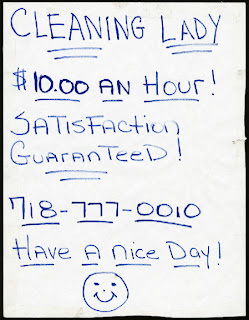 CLEANING LADY
$10.00 AN HOUR!
SATISFACTION
GUARANTEED!
718-777-0010
HAVE A NICE DAY!